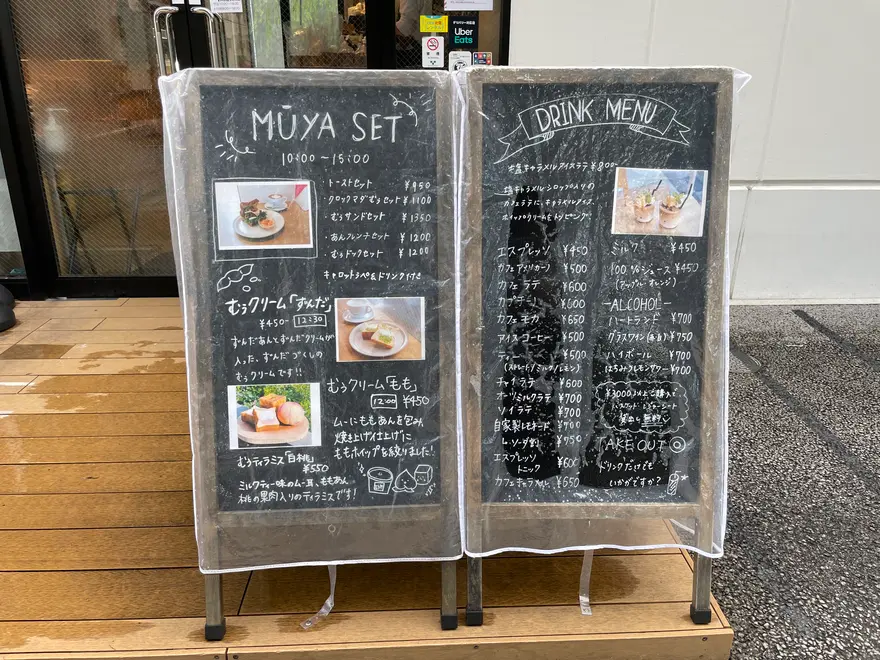 Uber
Eats
MŪYA SET
10:00～15:00
・トーストセット ¥950
・クロックマダムむぅセット ¥1100
・むぅサンドセット ¥1350
・あんフレンチセット ¥1200
・むぅドックセット ¥1200
キャロットラペ&ドリンク付き
むぅクリーム「ずんだ」
¥450- 12:30
ずんだあんとずんだクリームが
入った、ずんだづくしの
むぅクリームです!!
むぅクリーム「もも」
12:00 ¥450
ムーにももあんを包み、
焼き上げ仕上げに
ももホイップを絞りました!
むぅティラミス「白桃」
¥550
ミルクティー味のムー耳、ももあん
桃の果肉入りのティラミスです!
DRINK MENU
塩キャラメルアイスラテ ¥800-
塩キャラメルシロップの入りの
カフェラテに、キャラメルアイス、
ホイップクリームをトッピング
エスプレッソ ¥450
カフェアメリカーノ ¥500
カフェラテ ¥600
カプチーノ ¥600
カフェモカ ¥650
アイスコーヒー ¥500
ティー ¥500
(ストレート/ミルク/レモン)
チャイラテ ¥600
オーツミルクラテ ¥700
ソイラテ ¥700
自家製レモネード ¥700
ソーダ割 ¥750
エスプレッソ
トニック ¥600
カフェキャラメル ¥650
ミルク ¥450
100%ジュース ¥450
(アップル・オレンジ)
ALCOHOL
ハートランド ¥700
グラスワイン ¥750
ハイボール ¥700
はちみつレモンサワー ¥700
TAKE OUT
ドリンクだけでも
いかがですか?